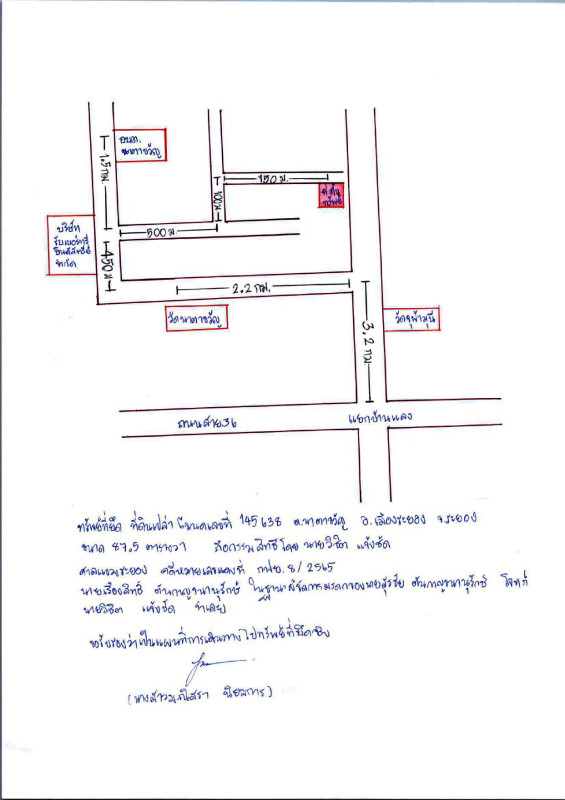 อบต.
นาตาขวัญ
1.5 กม.
150 ม.
100 ม
ที่ตั้ง
ทรัพย์
บริษัท
จำกัด
500 ม
450 ม
2.2 กม.
วัดนาตาขวัญ
3.2 กม
วัดจุฬามุนี
ถนนสาย 36
แยกบ้านแลง
ทรัพย์ที่ยึด ที่ดินเปล่า โฉนดเลขที่ 145638 ต.นาตาขวัญ อ.เมืองระยอง จ.ระยอง
ขนาด 87.5 ตารางวา ถือกรรมสิทธิ์โดย นายวิชิต แจ้งชัด
ศาลแขวงระยอง คดีหมายเลขแดงที่ 8/2565
นายเรืองสิทธิ์ ตันกาญจนานุรักษ์ ในฐานะผู้จัดการมรดกของนายสุรชัย ตันกาญจนานุรักษ์ โจทก์
นายวิชิต แจ้งชัด จำเลย
ขอรับรองว่าเป็นแผนที่การเดินทางไปทรัพย์ที่ยึดจริง
(นางสาว นิยมการ)